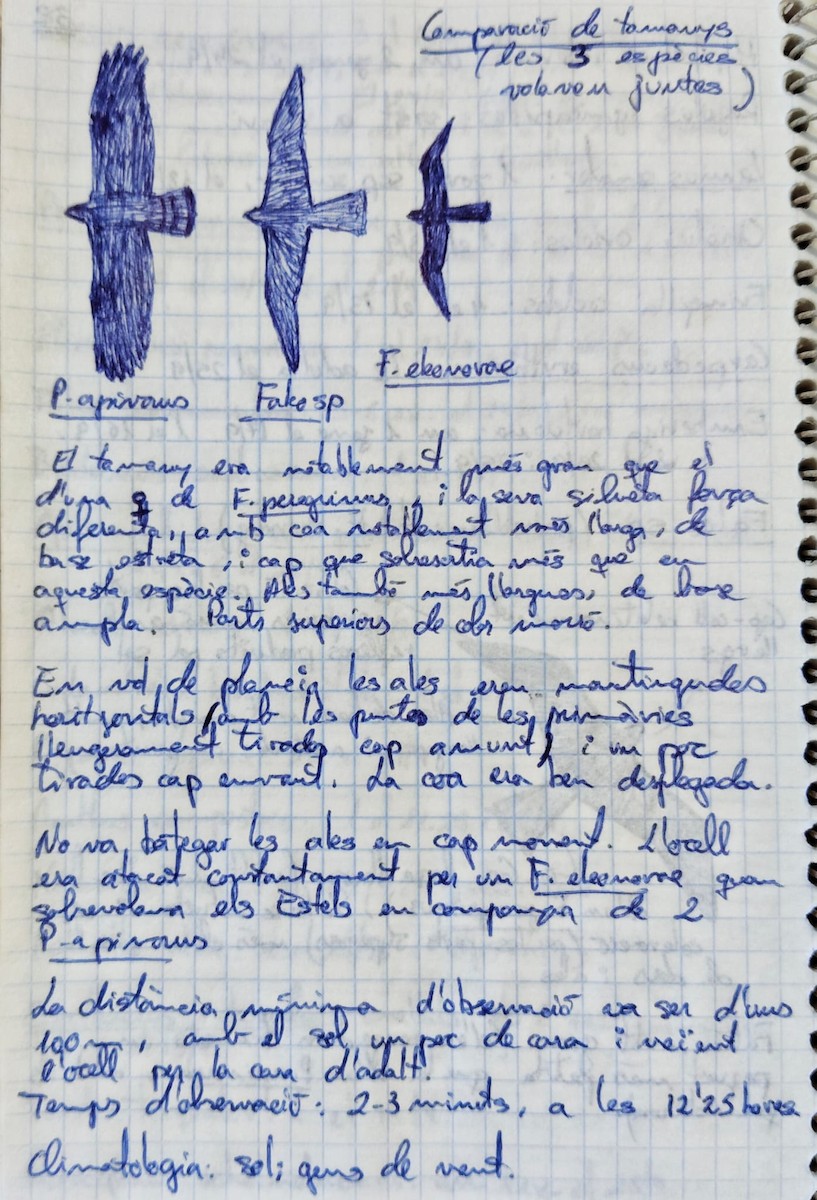 Comparació de tamanys
(les 3 espècies
volaven juntes)
P. apivorus
Falco sp
F. eleonorae
El tamany era notablement més gran que el
d'una ♀ de F. peregrinus, i la seva silueta força
diferenta, amb coa notablement més llarga, de
base estreta, i cap que sobresortia més que en
aquesta espècie. Ales també més llargues, de base
ampla. Parts superiors de color marró.
En vol de planeig les ales eren mantingudes
horitzontals (amb les puntes de les primàries
lleugerament tirades cap amunt) i un poc
tirades cap envant. La coa era ben desplegada.
No va bategar les ales en cap moment. L'ocell
era atacat constantament per un F. eleonorae quan
sobrevolava els Estels en companyia de 2
P. apivorus
La distància mínima d'observació va ser d'uns
100 m, amb el sol un poc de cara i veient
l'ocell per la cara d'adalt.
Temps d'observació: 2-3 minuts, a les 12'25 hores
Climatologia: sol; gens de vent.